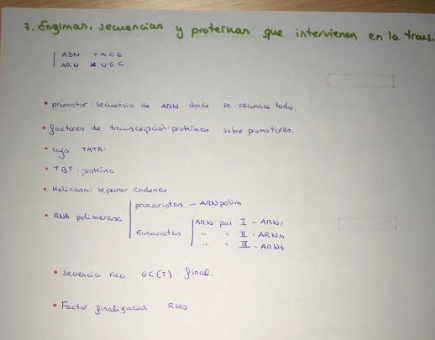 7. Enzimas, secuencias y proteínas que intervienen en la trans.
ADN T A C G
ARN A U G C
• promotor: secuencia de ADN donde se todo.
• factores de transcripción: proteínas sobre promotores.
• caja TATA:
• TBT: proteína
• Helicasa: separar cadenas
• RNA polimerasa
procariotas - ARN polim
eucariotas
ARN pol I - ARNr
" " II - ARNm
" " III - ARNt
• secuencia rica GC(T): final.
• Factor finalización RHO